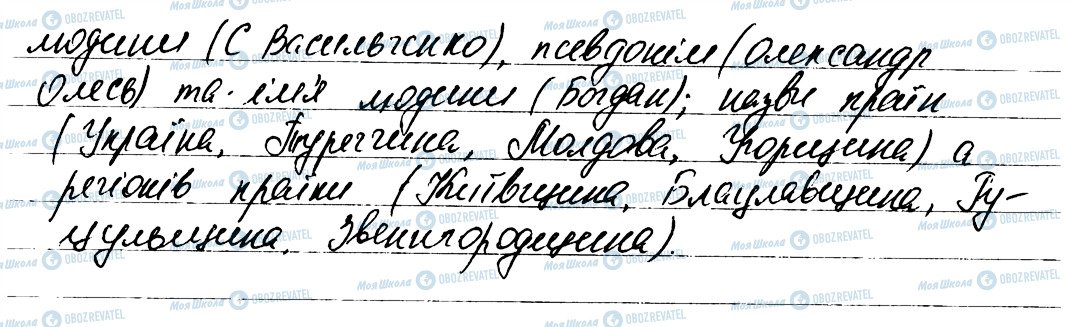 людини (С Васильченко), псевдонім (Олександр
Олесь) та ім'я людини (Богдан); назви країн
(Україна, Туреччина, Молдова, Угорщина) а
регіонів країни (Київщина, Брацлавщина, Гу-
цульщина, Звенигородщина).